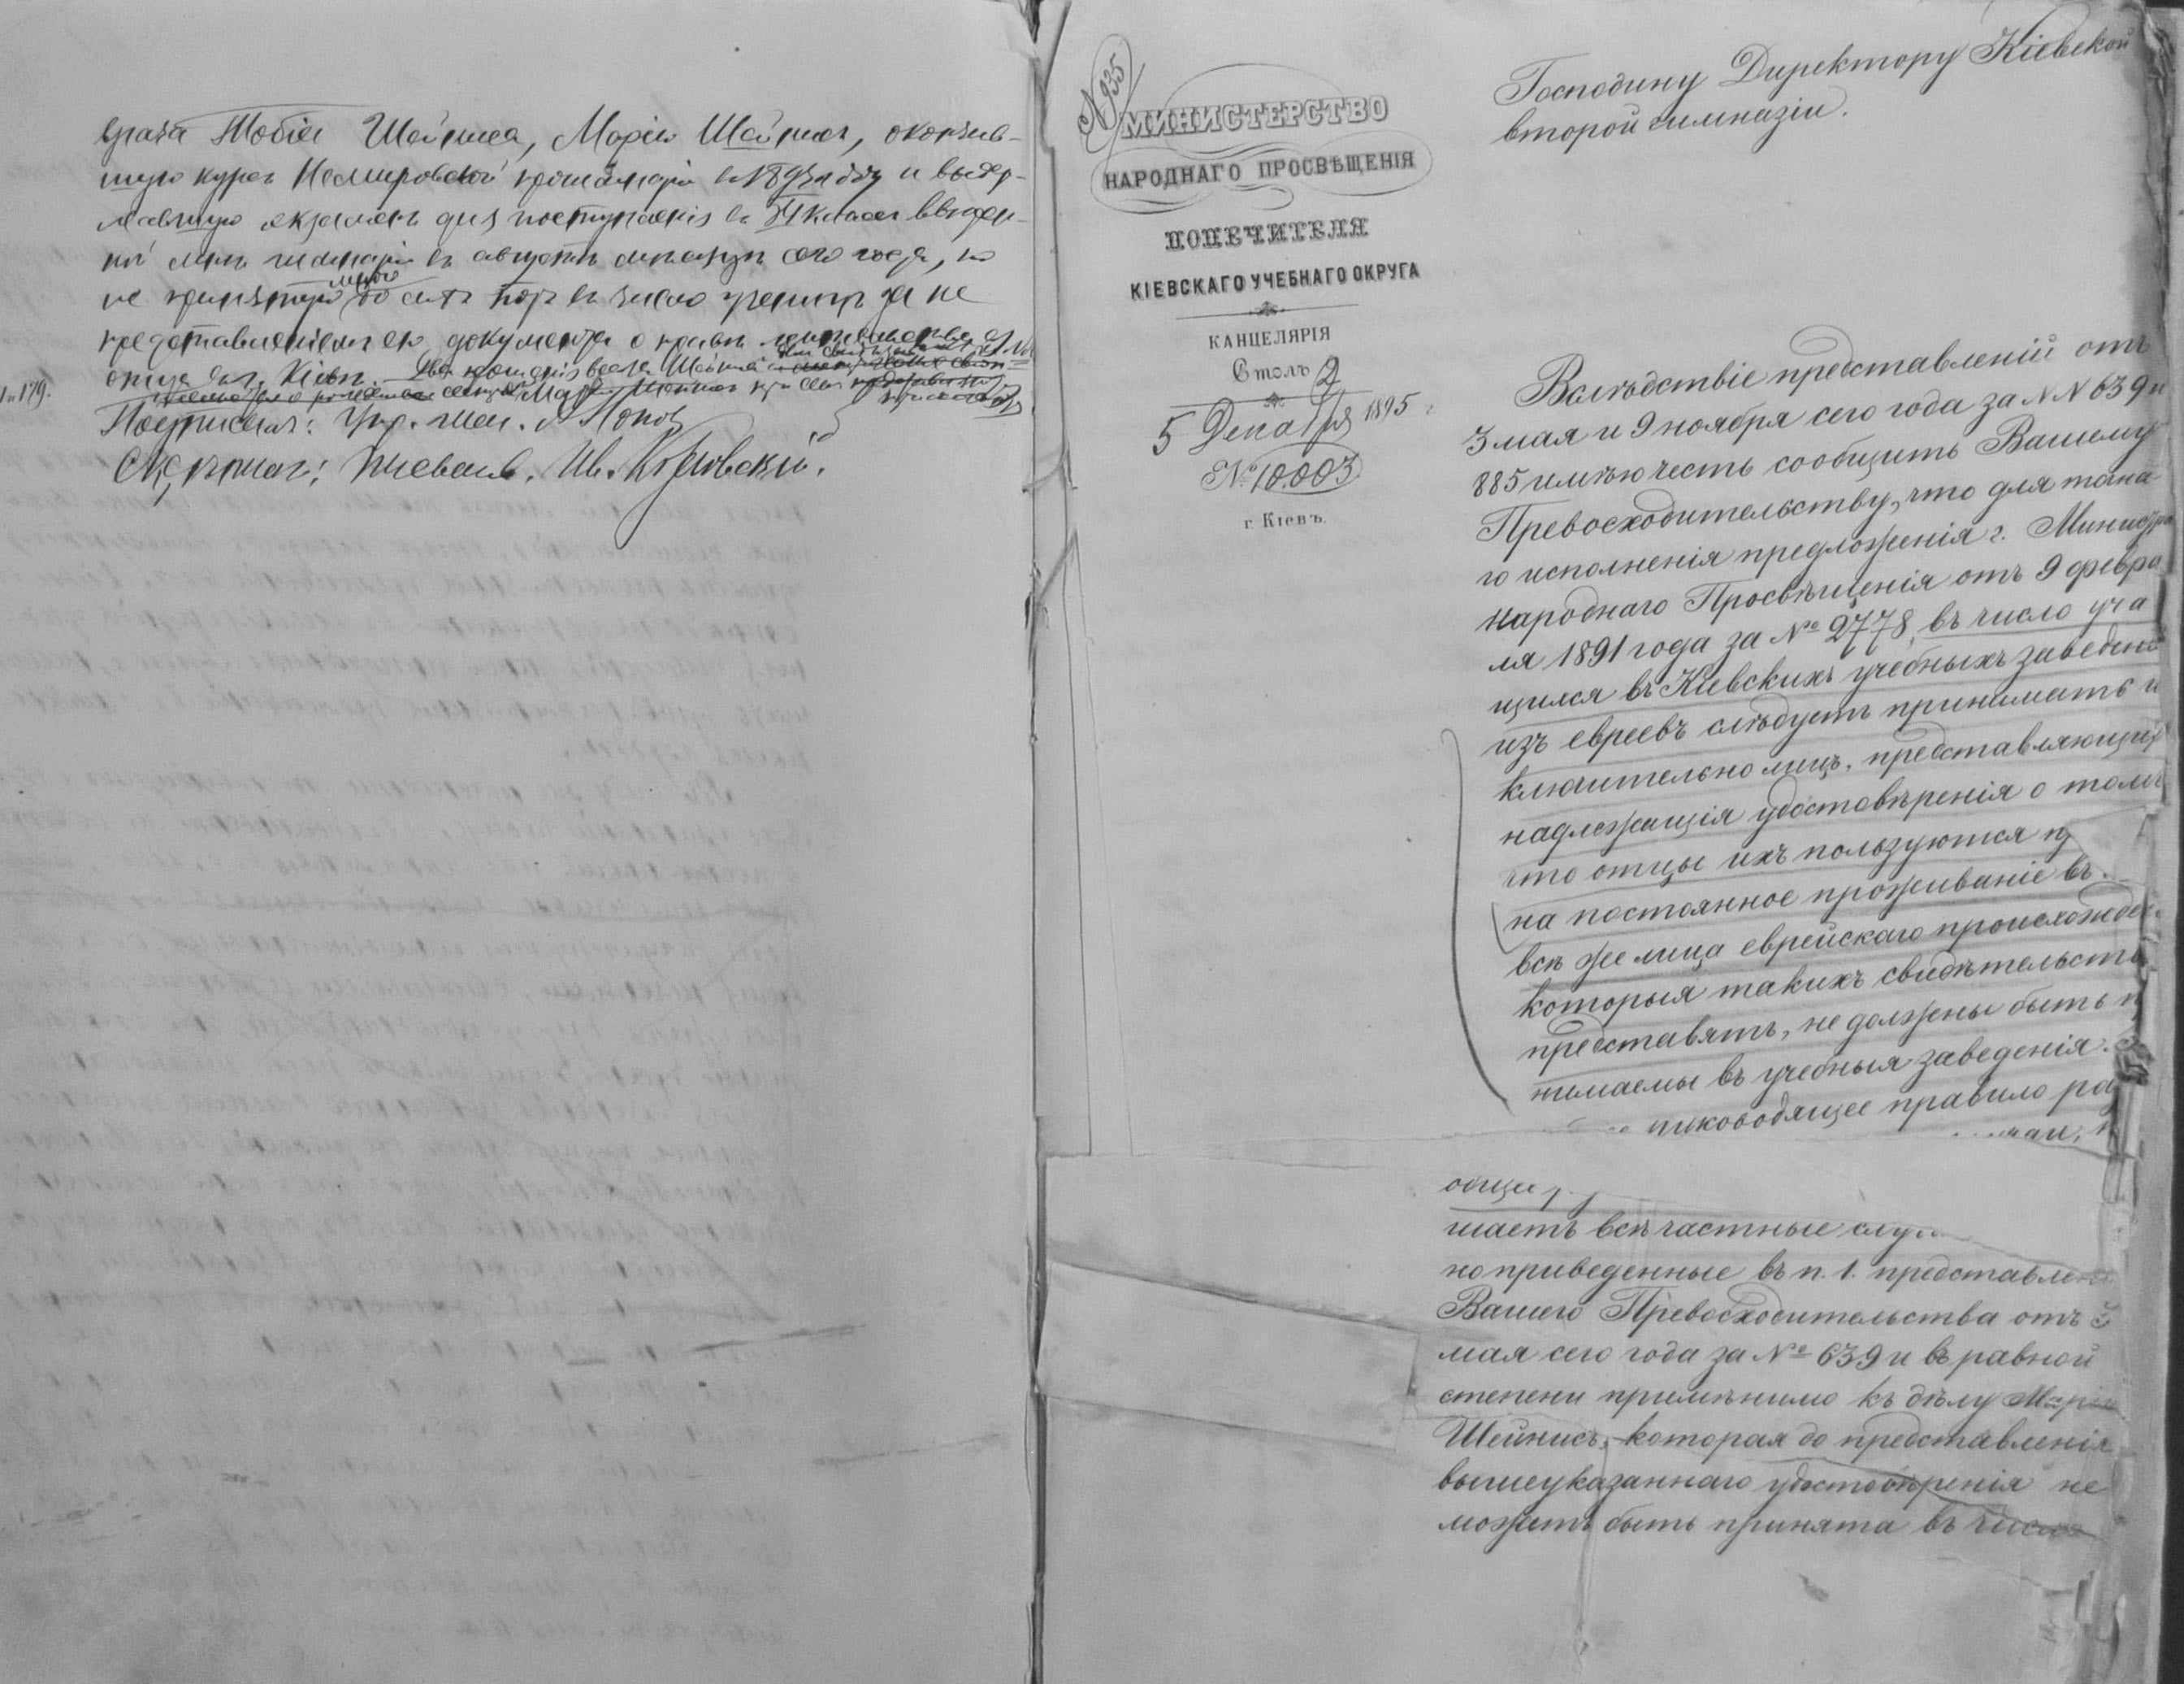 врача Тобіи Шейниса, Марію Шейнисъ, окончив-
шую курсъ Немировской прогимназіи въ 1895 году и выдер-
жавшую экзаменъ для поступленія въ VI классъ ввѣрен-
ной мнѣ гимназіи въ августѣ мѣсяцѣ сего года, но
не принятую мною до сихъ поръ въ число ученицъ за не
представленіемъ ею документа о правѣ жительства
отца въ г. Кіевѣ.
Подписалъ:
Скрѣпилъ:
№ 935
МИНИСТЕРСТВО
НАРОДНАГО ПРОСВѢЩЕНІЯ
ПОПЕЧИТЕЛЯ
КІЕВСКАГО УЧЕБНАГО ОКРУГА
КАНЦЕЛЯРІЯ
Столъ 2
5 Декабря 1895 г
№ 10.003
г. Кіевъ.
Господину Директору Кіевской
второй гимназіи.
Вслѣдствіе представленій отъ
3 мая и 9 ноября сего года за №№ 639 и
885 имѣю честь сообщить Вашему
Превосходительству, что для точна-
го исполненія предложенія г. Министра
Народнаго Просвѣщенія отъ 9 февра
ля 1891 года за № 2778, въ число уча
щихся въ Кіевскихъ учебныхъ заведені
изъ евреевъ слѣдуетъ принимать и
ключительно лицъ, представляющихъ
надлежащія удостовѣренія о томъ
что отцы ихъ пользуются п
на постоянное проживаніе въ
всѣ же лица еврейскаго происхожден
которыя такихъ свидѣтельствъ
представятъ, не должны быть п
нимаемы въ учебныя заведенія.
руководящее правило раз
общее
шаетъ всѣ частные слу
но приведенные въ п. 1. представлені
Вашего Превосходительства отъ 3
мая сего года за № 639 и въ равной
степени примѣнимо къ дѣлу Маріи
Шейнисъ, которая до представленія
вышеуказаннаго удостовѣренія не
можетъ быть принята въ число